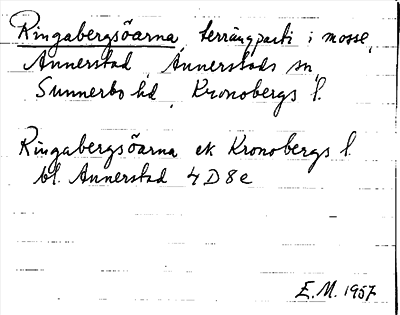 Ringabergsöarna, terrängparti i mosse,
Annerstad, Annerstads sn,
Sunnerbo hd, Kronobergs l.
Ringabergsöarna ek Kronobergs l.
bl. Annerstad 4D8e
E.M. 1957